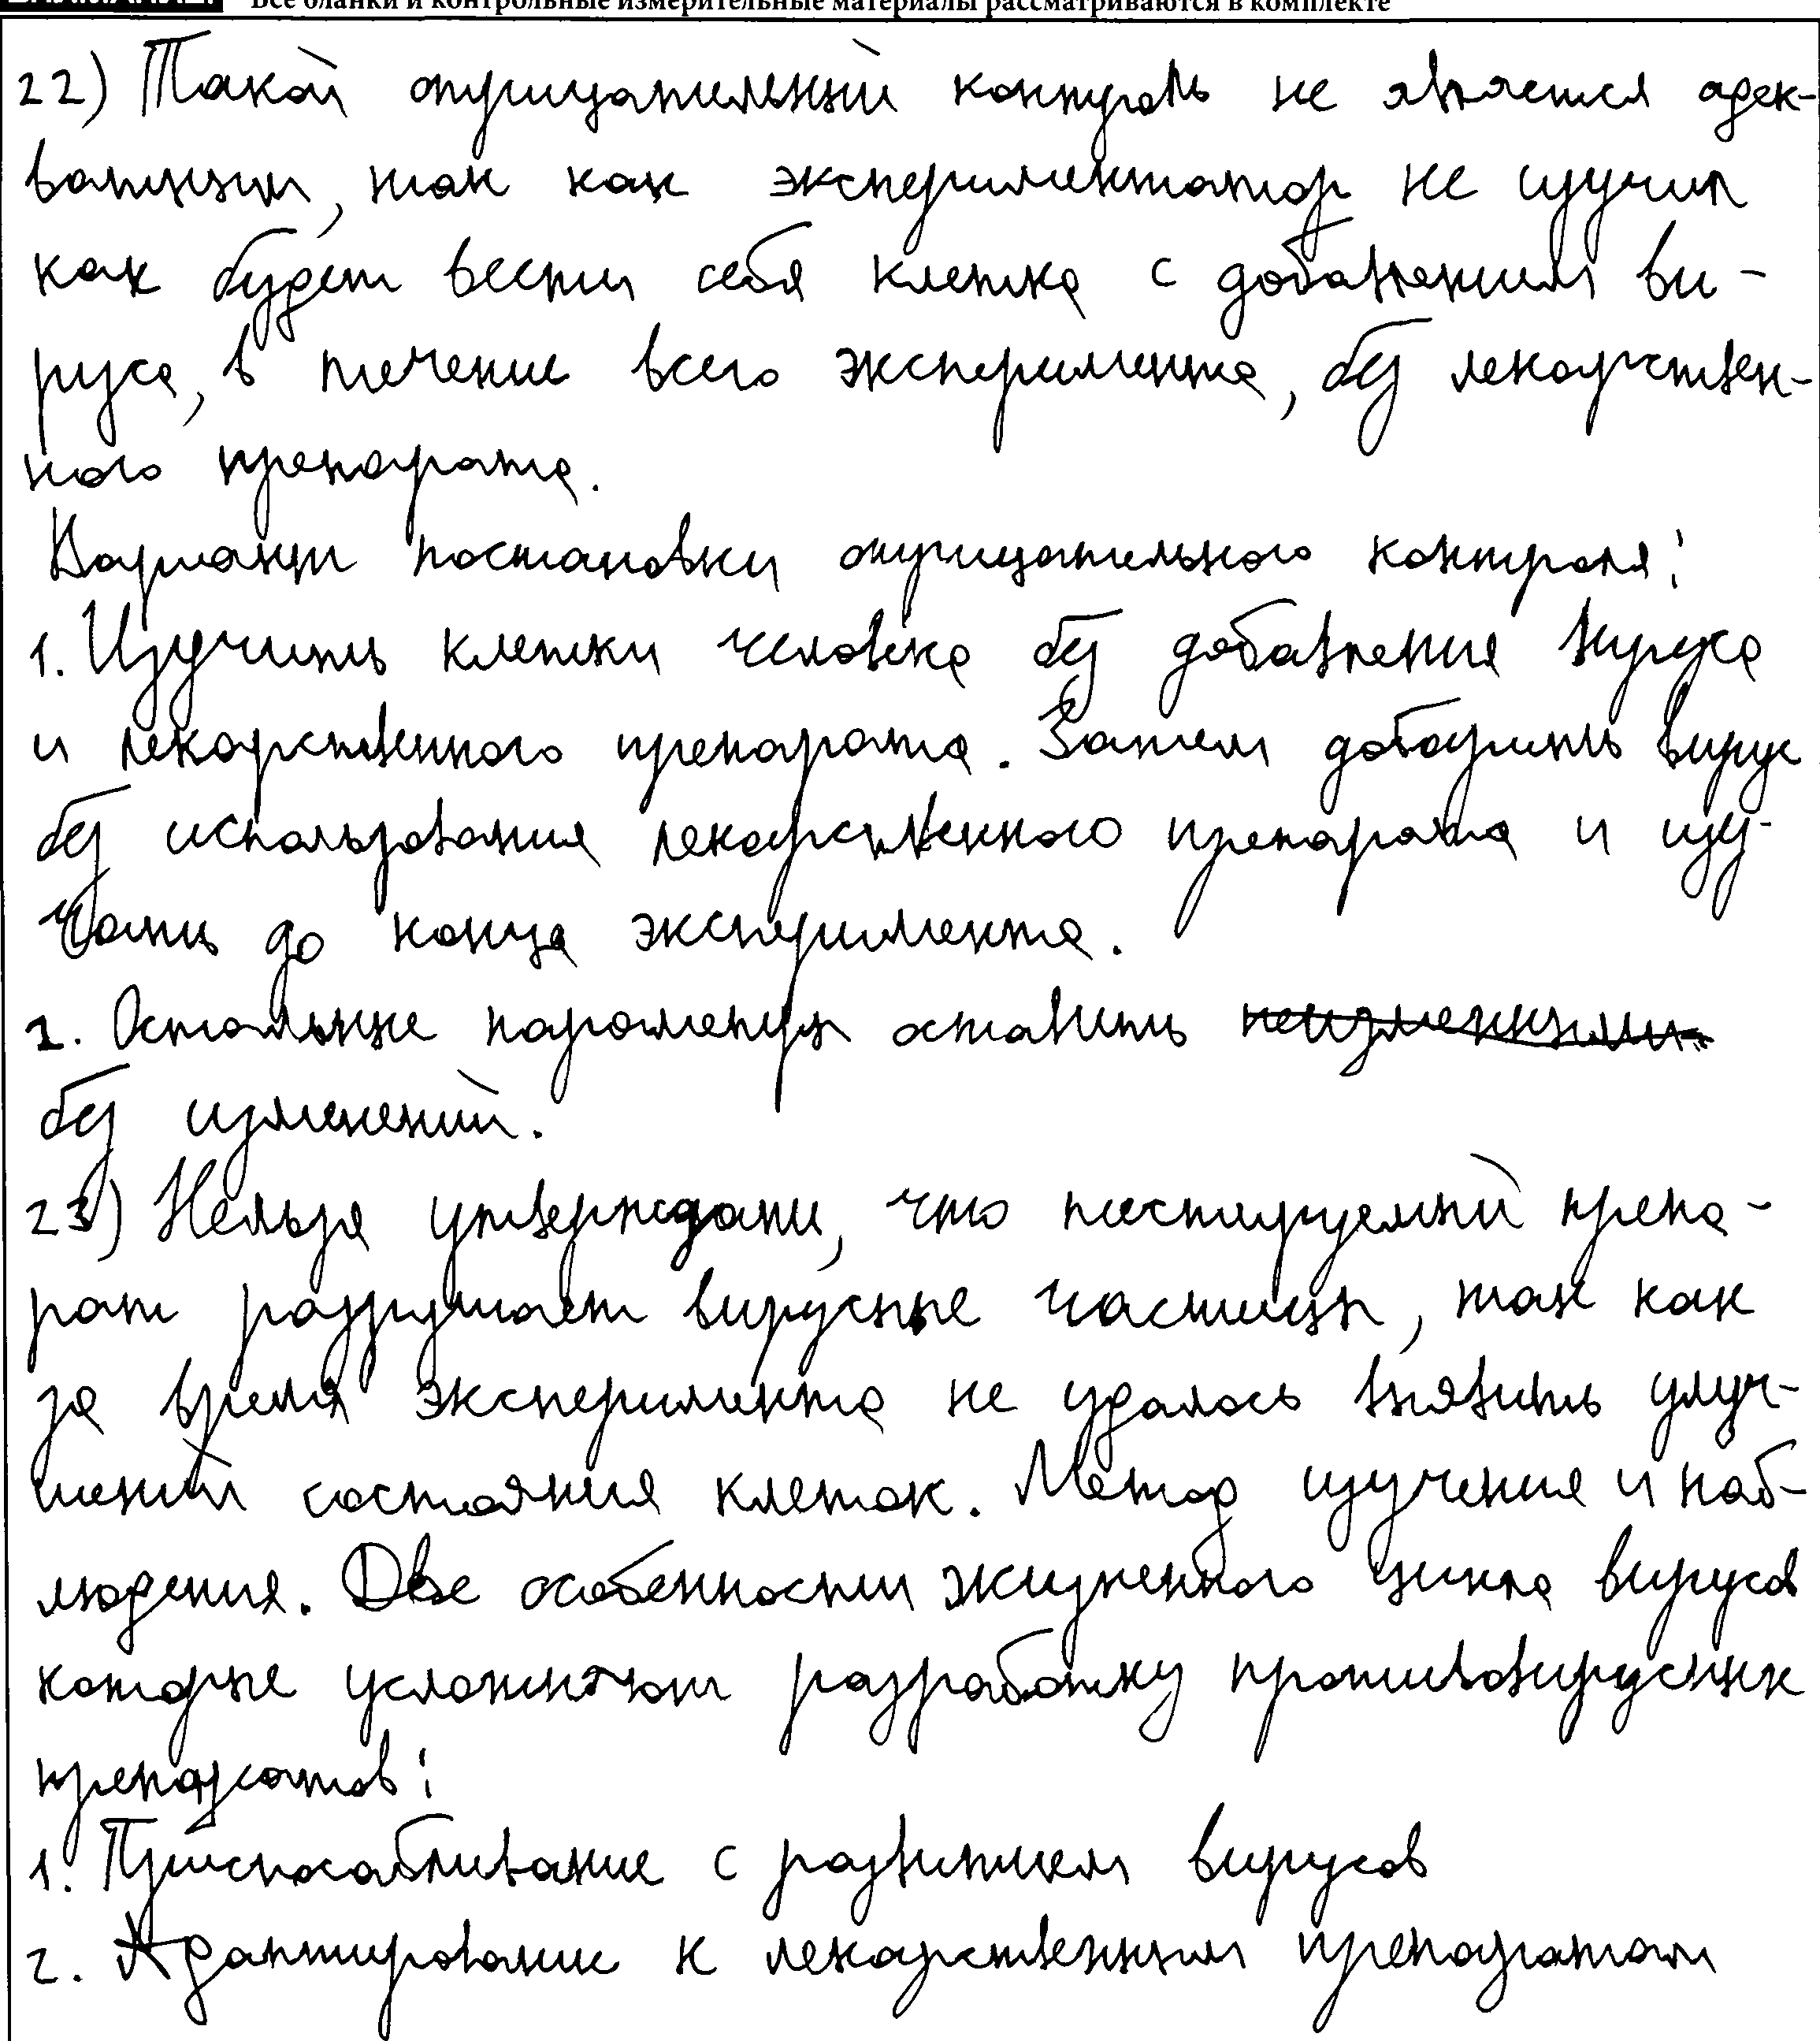 Все бланки и контрольные измерительные материалы рассматриваются в комплекте
22) Такой отрицательный контроль не является адек-
ватным, так как экспериментатор не изучил
как будет вести себя клетка с добавлением ви-
руса, в течение всего эксперимента, без лекарствен-
ного препарата.
Варианты постановки отрицательного контроля:
1. Изучить клетки человека без добавления вируса
и лекарственного препарата. Затем добавить вирус
без использования лекарственного препарата и изу-
чать до конца эксперимента.
2. Остальные параметры оставить неизменными
без изменений.
23) Нельзя утверждать, что тестируемый препа-
рат разрушает вирусные частицы, так как
за время эксперимента не удалось выявить улуч-
шений состояния клеток. Метод изучения и наб-
людения. Две особенности жизненного цикла вирусов
которые усложняют разработку противовирусных
препаратов:
1. Приспосабливание с развитием вирусов
2. Адаптирование к лекарственным препаратам